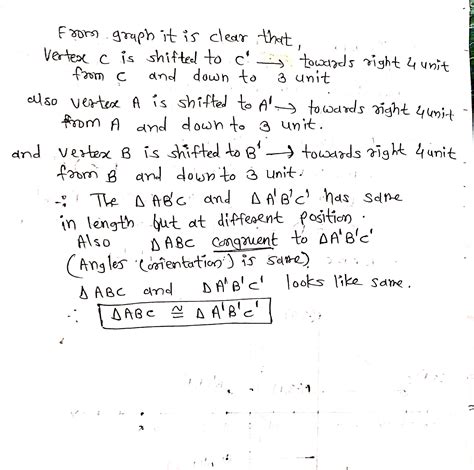 From graph it is clear that,
Vertex C is shifted to C' → towards right 4 unit
from C and down to 3 unit
also vertex A is shifted to A' → towards right 4 unit
from A and down to 3 unit.
and vertex B is shifted to B' → towards right 4 unit
from B and down to 3 unit.
∵ The Δ ABC and Δ A'B'C' has same
in length but at different position.
Also Δ ABC congruent to ΔA'B'C'
(Angles (orientation) is same)
Δ ABC and Δ A'B'C' looks like same.
∴ ΔABC ≅ Δ A'B'C'